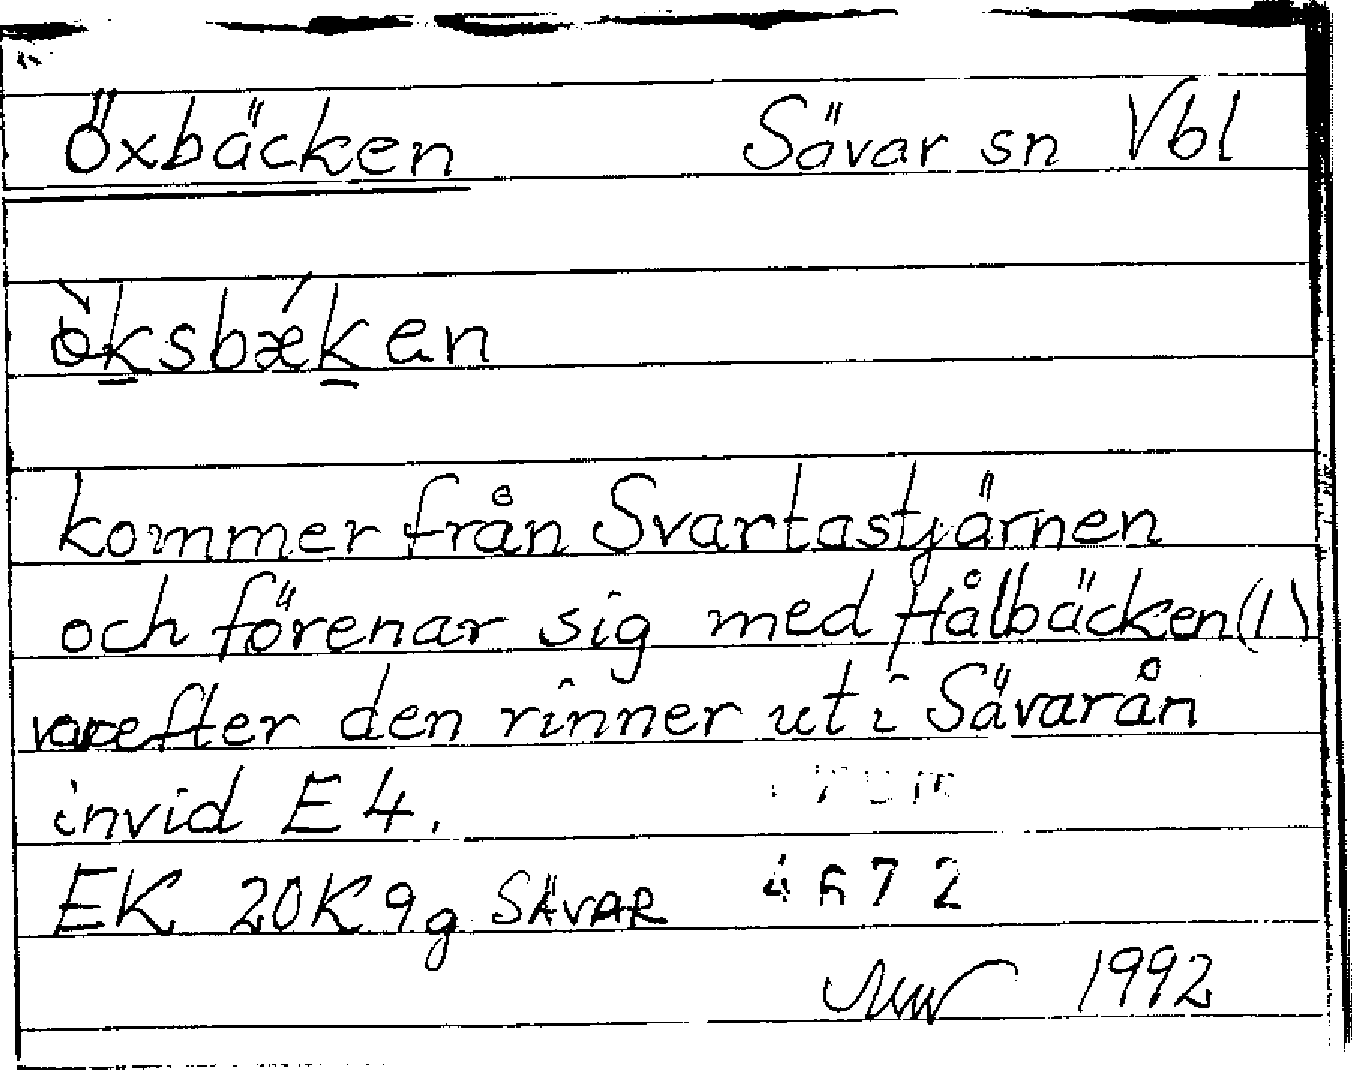 Öxbäcken Sävar sn Vbl
kommer från Svartastjärnen
och förenar sig med Hålbäcken(1)
varefter den rinner ut i Sävarån
invid E4.
EK 20K9g SÄVAR 4672
1992